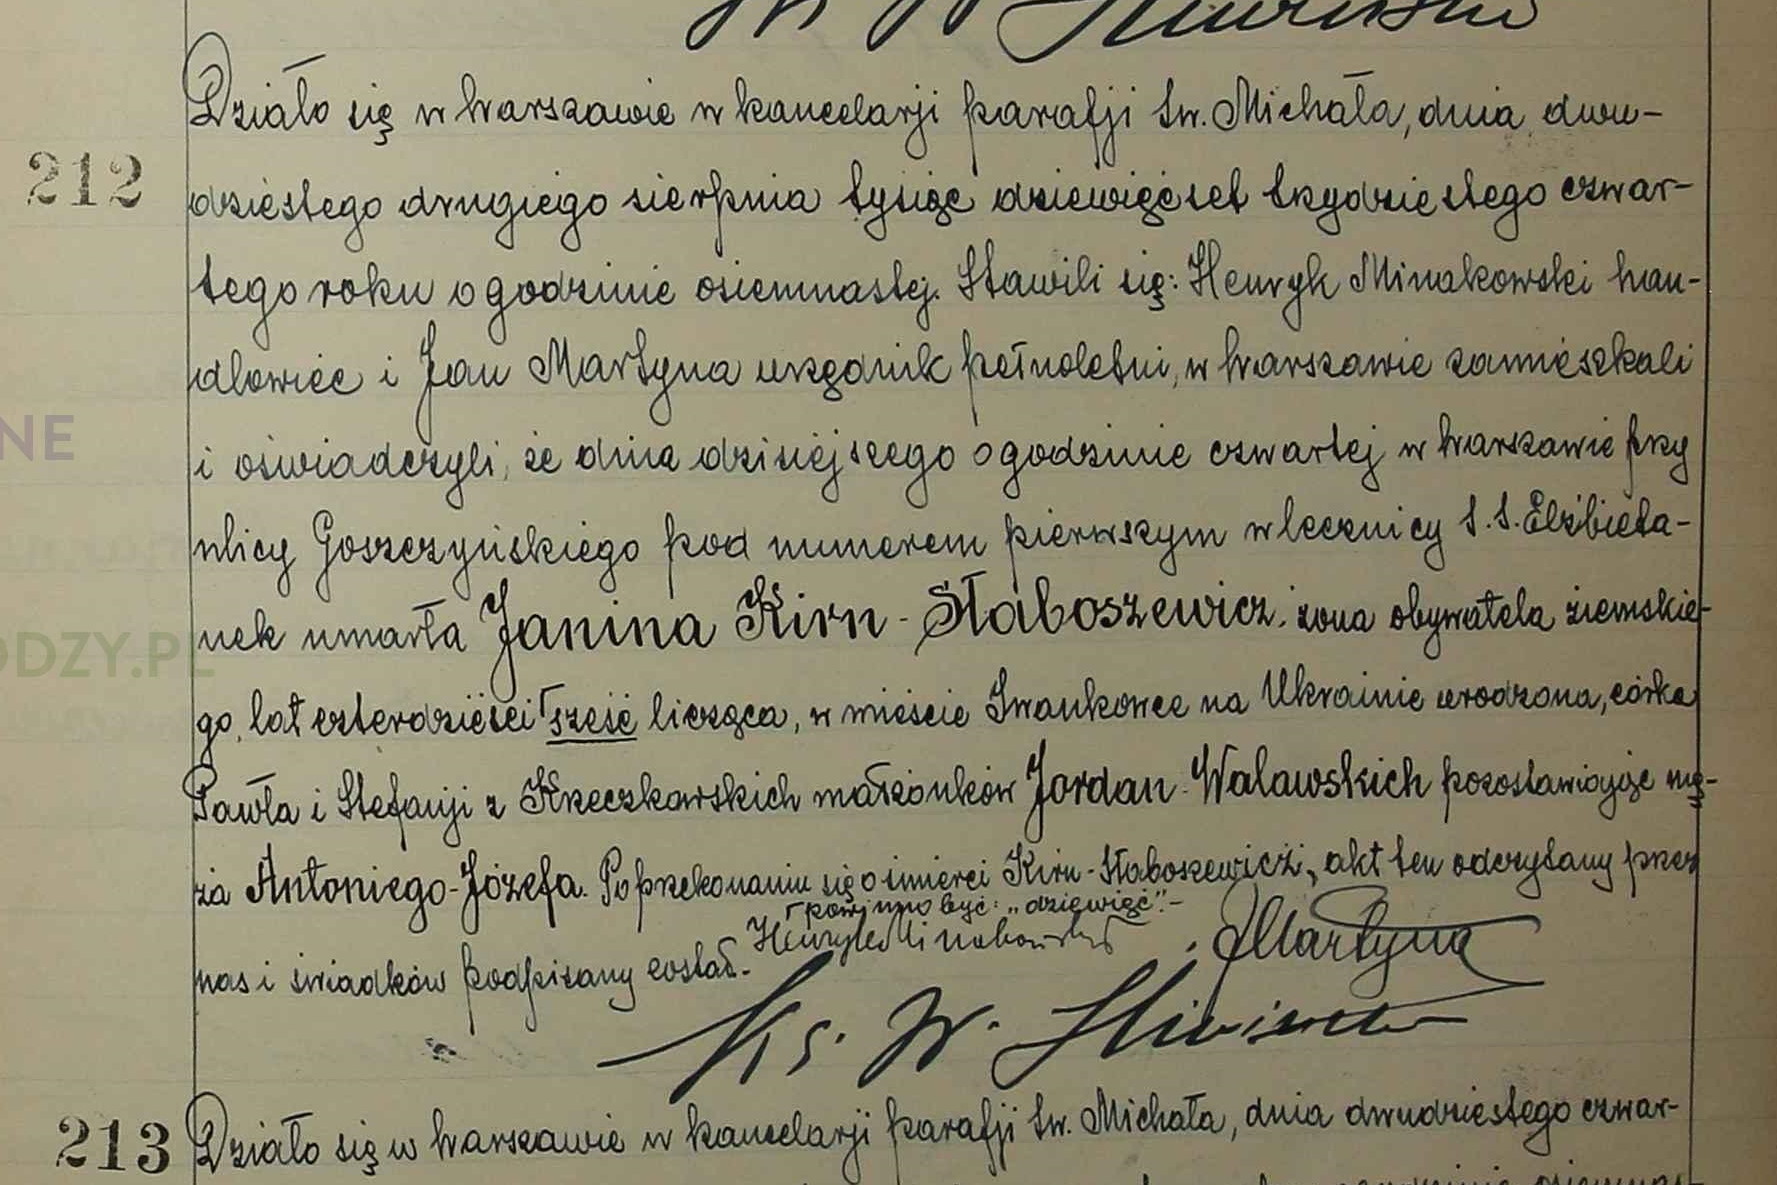 Działo się w Warszawie w kancelarji parafji św. Michała, dnia dwu-
212
dziestego drugiego sierpnia tysiąc dziewięćset trzydziestego czwar-
tego roku o godzinie osiemnastej. Stawili się: Henryk Minakowski han-
dlowiec i Jan Martyna urzędnik pełnoletni, w Warszawie zamieszkali
NE
i oświadczyli, że dnia dzisiejszego o godzinie czwartej w Warszawie przy
ulicy Goszczyńskiego pod numerem pierwszym w lecznicy S.S. Elżbieta-
nek umarła Janina Kirn-Słaboszewicz, żona obywatela ziemskie-
ODZY.PL
go, lat czterdzieści sześć licząca, w mieście Iwankowce na Ukrainie urodzona, córka
Pawła i Stefanji z Krzeczkowskich małżonków Jordan-Walawskich pozostawiając mę-
ża Antoniego-Józefa. Po przekonaniu się o śmierci Kirn-Słaboszewicz, akt ten odczytany przez
powinno być: „dziewięć".-
nas i świadków podpisany został.- Henryk Minakowski JMartyna
Ks. W.
213
Działo się w Warszawie w kancelarji parafji św. Michała, dnia dwudziestego czwar-